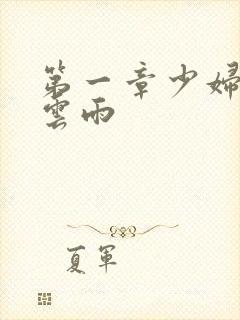 第一章少婦
雲雨
夏軍